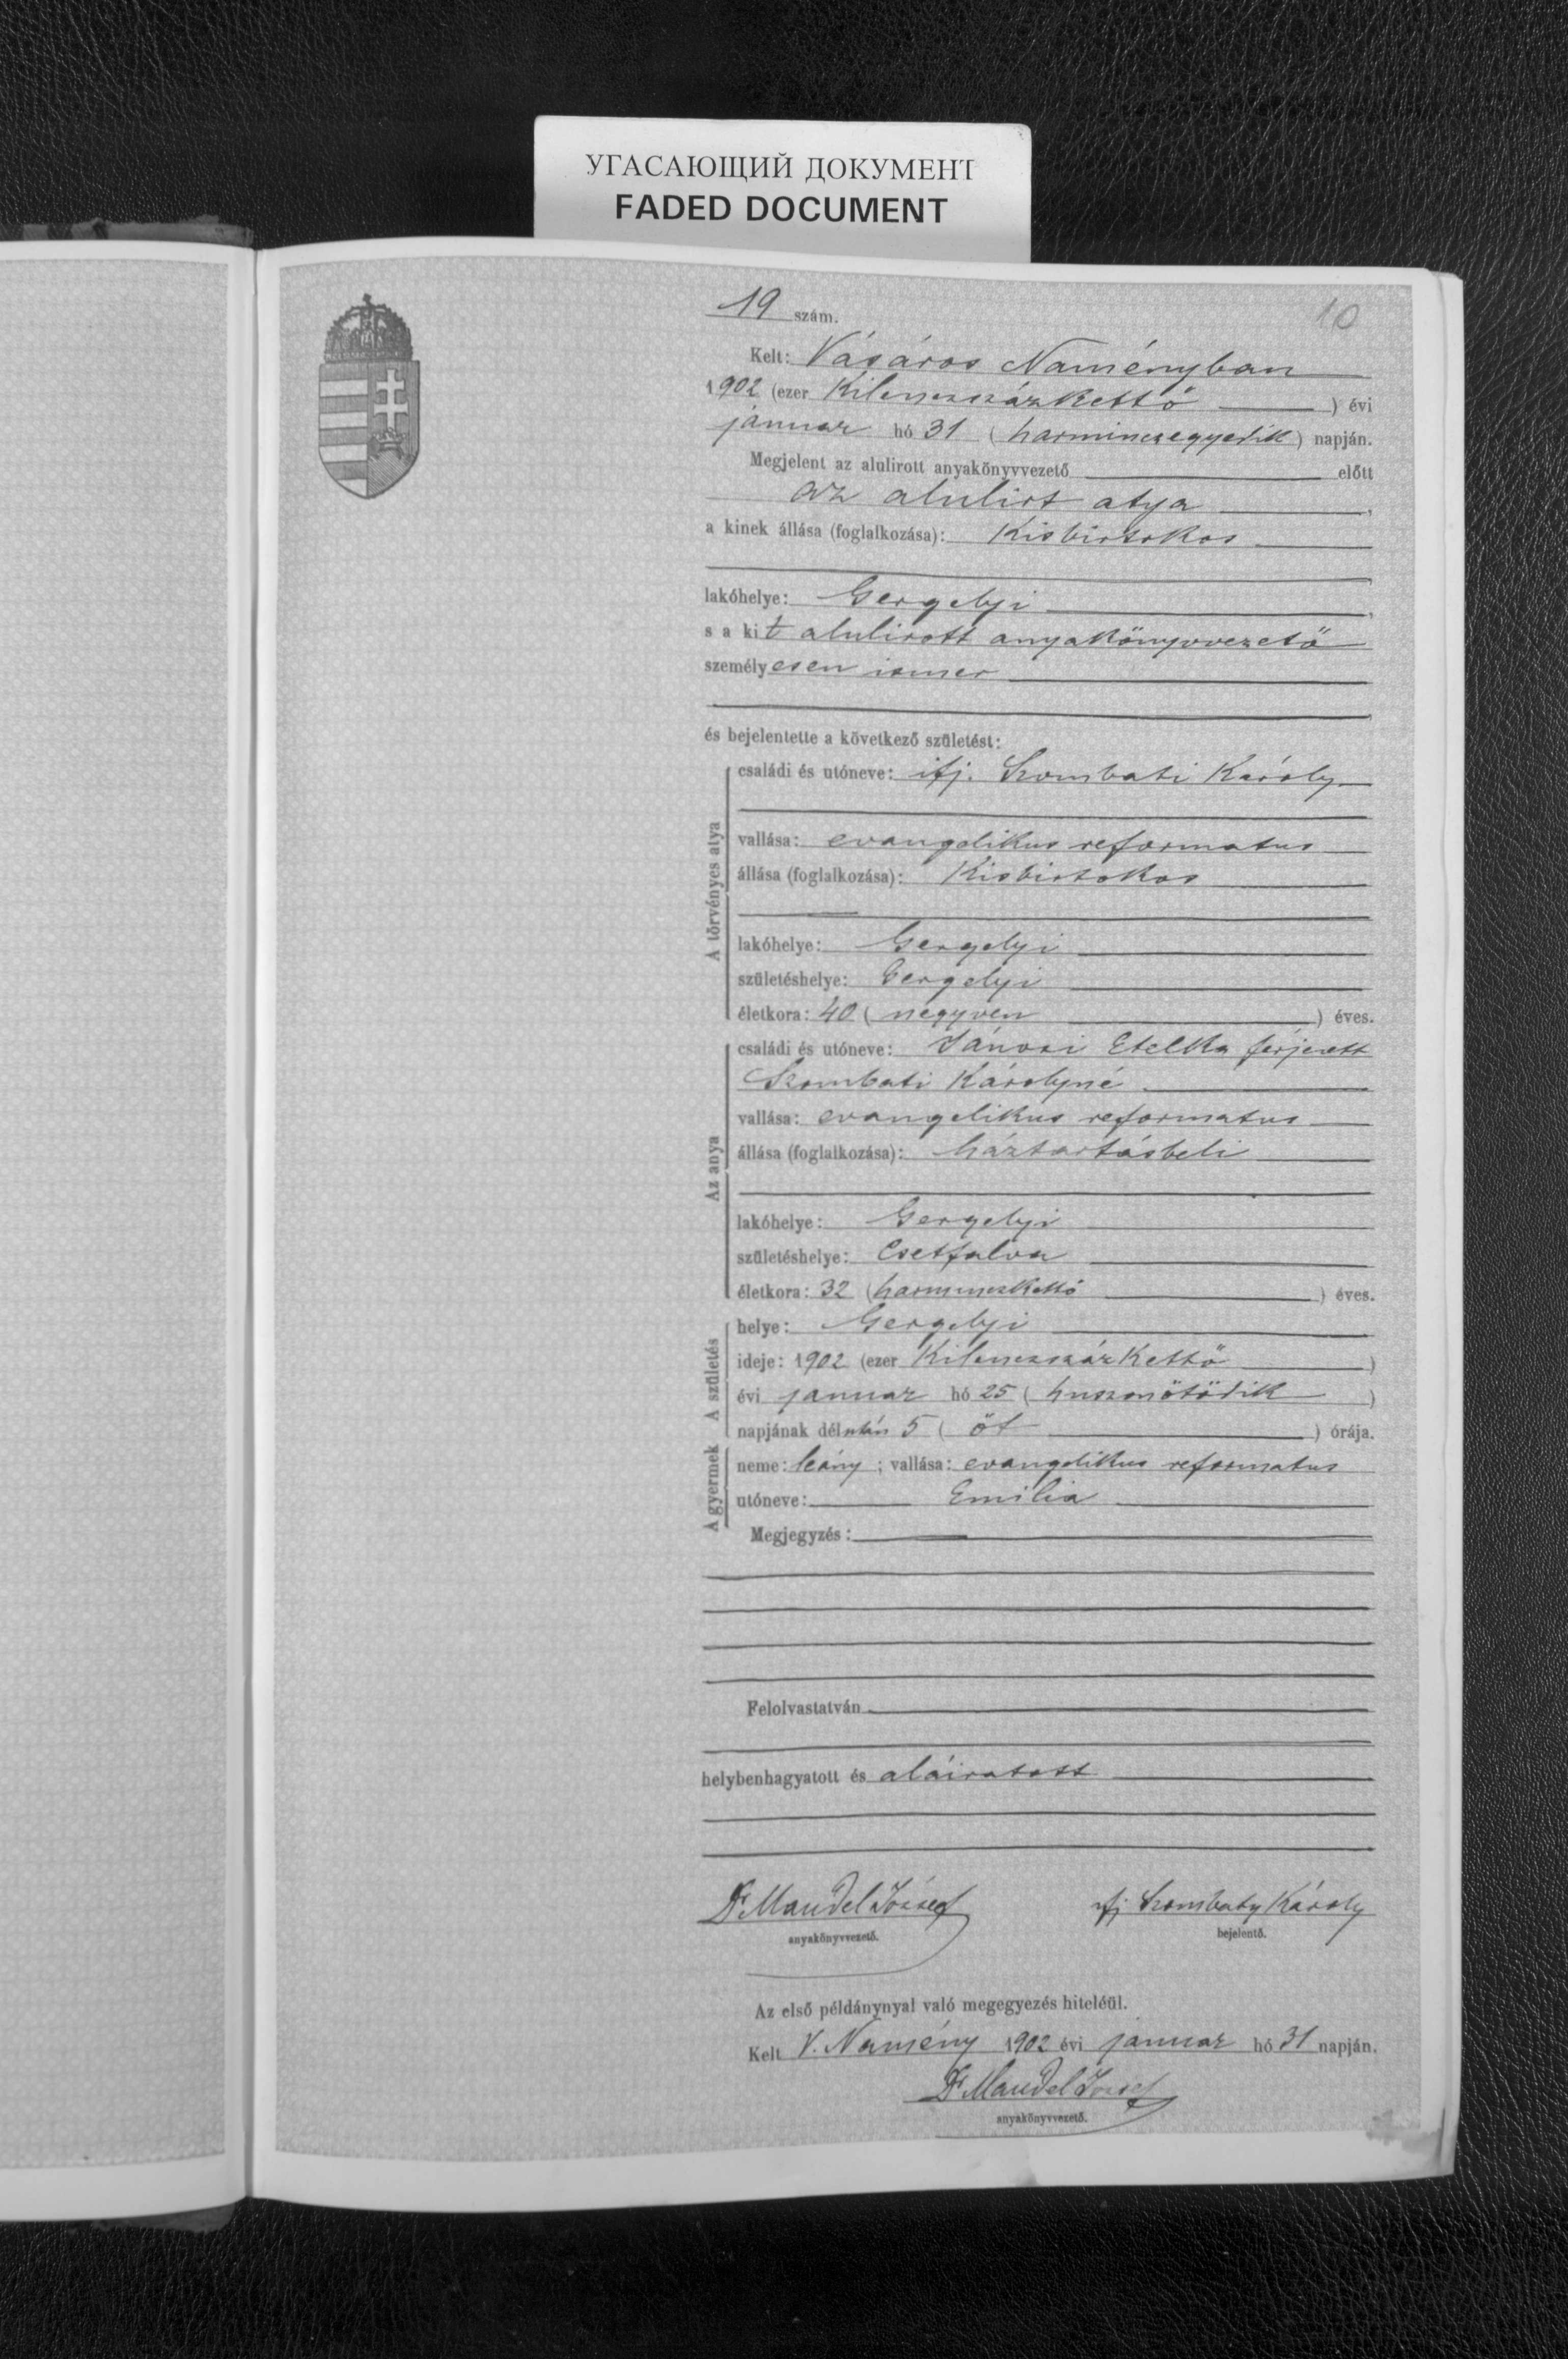 УГАСАЮЩИЙ ДОКУМЕНТ
FADED DOCUMENT
19 szám.
10
Kelt: Vásáros Naményban
1902 (ezer Kilenczszázkettő ) évi
januar hó 31 (harminczegyedik) napján.
Megjelent az alulirott anyakönyvvezető előtt
az alulirt atya ,
a kinek állása (foglalkozása): Kisbirtokos
lakóhelye: Gergelyi ,
s a kit alulirott anyakönyvvezető
személyesen ismer
és bejelentette a következő születést:
A törvényes atya
családi és utóneve: ifj. Szombati Károly
vallása: evangelikus reformatus
állása (foglalkozása): Kisbirtokos
lakóhelye: Gergelyi
születéshelye: Gergelyi
életkora: 40 (negyven ) éves.
Az anya
családi és utóneve: Jánosi Etelka férjezett
Szombati Károlyné
vallása: evangelikus reformatus
állása (foglalkozása): háztartásbeli
lakóhelye: Gergelyi
születéshelye: Csetfalva
életkora: 32 (harminczkettő ) éves.
A születés
helye: Gergelyi
ideje: 1902 (ezer Kilenczszázkettő )
évi januar hó 25 (huszonötödik )
napjának délután 5 ( öt ) órája.
A gyermek
neme: leány ; vallása: evangelikus reformatus
utóneve: Emilia
Megjegyzés:
Felolvastatván
helybenhagyatott és aláiratott
Dr Mandel József
anyakönyvvezető.
ifj Szombaty Károly
bejelentő.
Az első példánynyal való megegyezés hiteléül.
Kelt V. Namény 1902 évi januar hó 31 napján.
Dr Mandel József
anyakönyvvezető.